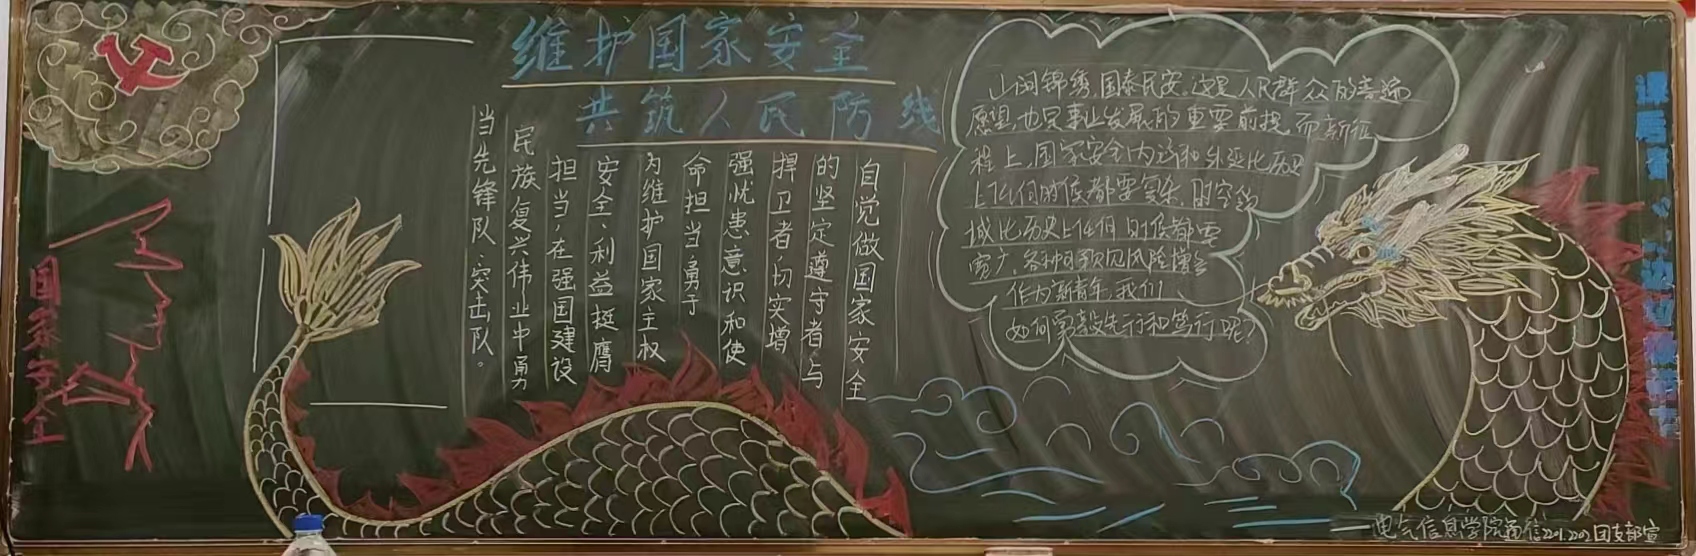 维护国家安全
共筑人民防线
自觉做国家安全
的坚定遵守者与
捍卫者，切实增
强忧患意识和使
命担当，勇于
为维护国家主权
安全、利益挺膺
担当，在强国建设
民族复兴伟业中勇
当先锋队、突击队。
山河锦绣，国泰民安，这是人民群众的普遍
愿望，也是事业发展的重要前提，而新征
程上，国家安全内涵和外延比历史
上任何时候都要复杂，时空领
域比历史上任何时候都要
宽广，各种可预见风险增多
作为新青年，我们
如何先行和笃行呢？
国家安全
一电气信息学院通信2201.2202团支部宣